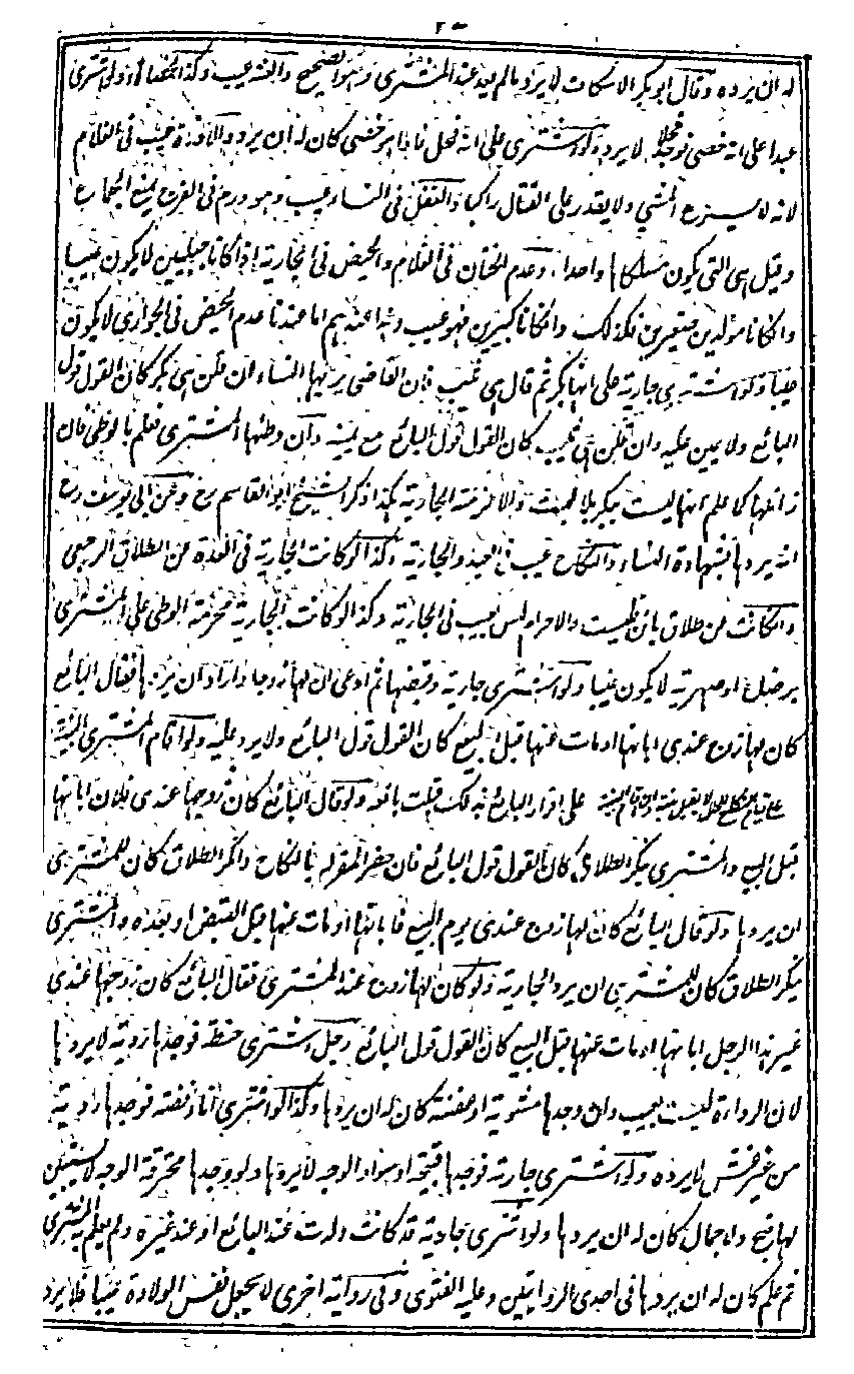 له ان يرده وقال ابو بكر الاسكاف لا يرد ما لم يعد عند المشترى وهو الصحيح والعنة عيب وكذا الخصاء ولو اشترى
عبدا على انه خصى فوجده فحلا لا يرد ولو اشترى على انه فحل فاذا هو خصى كان له ان يرد والادرة عيب فى الغلام
لانه لا يسرع المشي ولا يقدر على القتال راكبا والعفل فى النساء عيب وهو ورم فى الفرج يمنع الجماع
وقيل هى التى يكون مسلكاها واحدا وعدم الختان فى الغلام والحيض فى الجارية اذا كانا جليبين لا يكون عيبا
وان كانا مولدين صغيرين فكذلك وان كانا كبيرين فهو عيب وهذا عندهم اما عندنا عدم الحيض فى الجوارى لا يكون
عيبا ولو اشترى جارية على انها بكر ثم قال هى ثيب فان القاضى يريها النساء ان قلن هى بكر كان القول قول
البائع ولا يمين عليه وان قلن هى ثيب كان القول قول البائع مع يمينه وان وطئها المشترى فعلم بالوطى فان
زايلها كما علم انها ليست ببكر بلا لبث والا لزمته الجارية هكذا ذكر الشيخ ابو القاسم رح وعن ابى يوسف رح
انه يردها بشهادة النساء والنكاح عيب فى العبد والجارية وكذا لو كانت الجارية فى العدة من الطلاق الرجعى
وان كانت من طلاق بائن فليست والاحرام ليس بعيب فى الجارية وكذا لو كانت الجارية محرمة الوطى على المشترى
برضاع او صهرية لا يكون عيبا ولو اشترى جارية وقبضها ثم ادعى ان لها زوجا واراد ان يردها فقال البائع
كان لها زوج عندى ابانها او مات عنها قبل البيع كان القول قول البائع ولا يرد عليه ولو اقام المشترى البينة
على قيام النكاح للحال لا يقبل بينته وان اقام البينة على اقرار البائع بذلك قبلت بينته ولو قال البائع كان زوجها عندى فلان ابانها
قبل البيع والمشترى ينكر الطلاق كان القول قول البائع فان حضر المقر له بالنكاح وانكر الطلاق كان للمشترى
ان يردها ولو قال البائع كان لها زوج عندى يوم البيع فابانها او مات عنها قبل القبض او بعده والمشترى
ينكر الطلاق كان للمشترى ان يرد الجارية ولو كان لها زوج عند المشترى فقال البائع كان زوجها عندى
غير هذا الرجل ابانها او مات عنها قبل البيع كان القول قول البائع رجل اشترى حنطة فوجدها ردية لا يردها
لان الرداءة ليست بعيب وان وجدها مسوسة او عفنة كان له ان يردها وكذا لو اشترى اناء فضة فوجدها ردية
من غير غش لا يرده ولو اشترى جارية فوجدها قبيحة او سواد الوجه لا يردها ولو وجدها محترقة الوجه لا يستبين
لها قبح ولا جمال كان له ان يردها ولو اشترى جارية قد كانت ولدت عند البائع او عند غيره ولم يعلم به المشترى
ثم علم كان له ان يردها فى احدى الروايتين وعليه الفتوى وفى رواية اخرى لا يجعل نفس الولادة عيبا فلا يرد